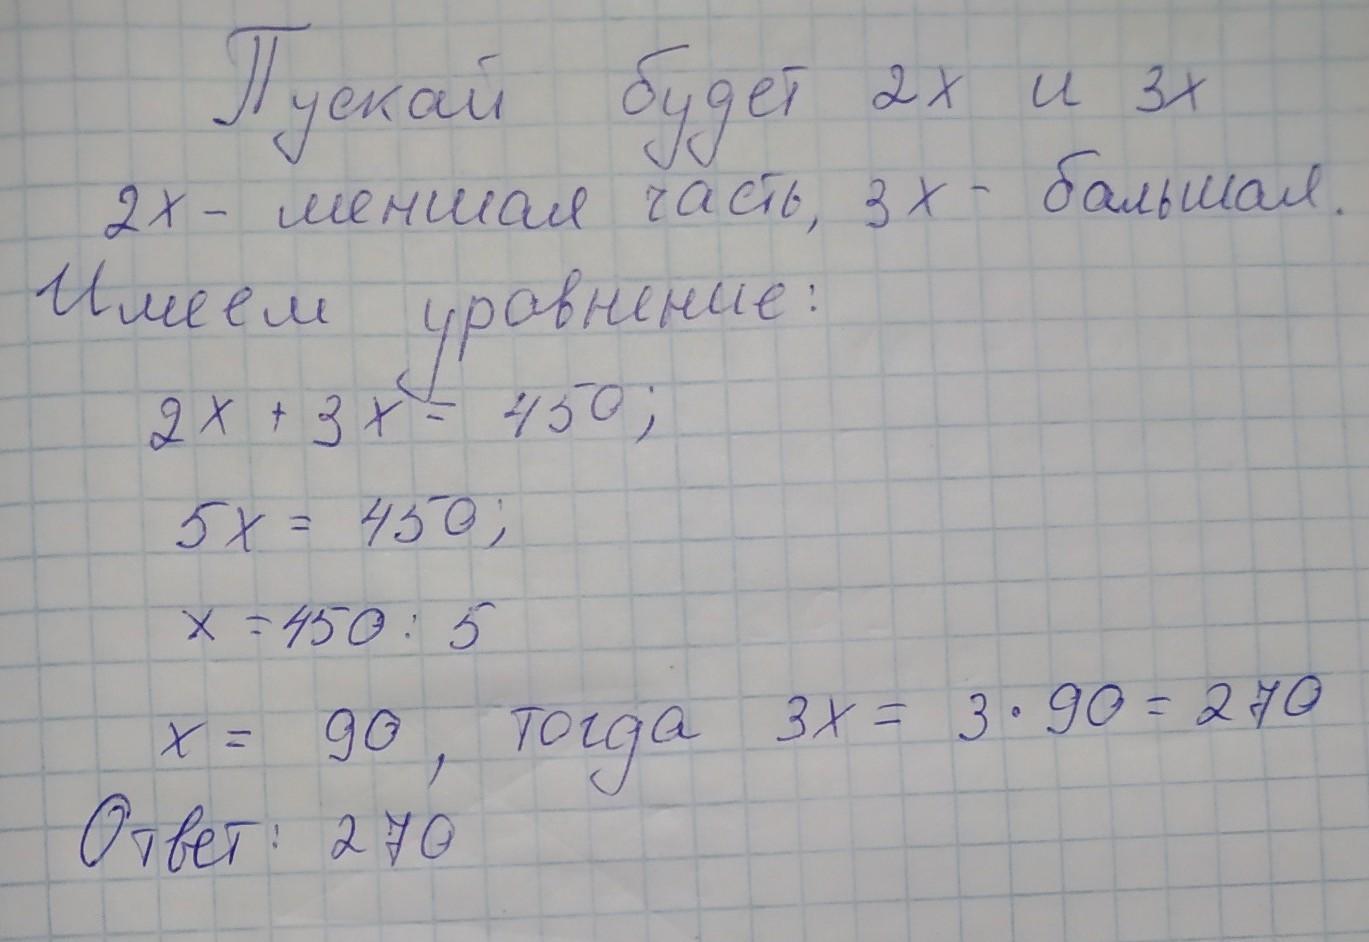 Пускай будет 2х и 3х
2х - меншая часть, 3х - бальшая.
Имеем уравнение:
2х + 3х = 450;
5х = 450;
х = 450 : 5
х = 90, тогда 3х = 3 · 90 = 270
Ответ: 270